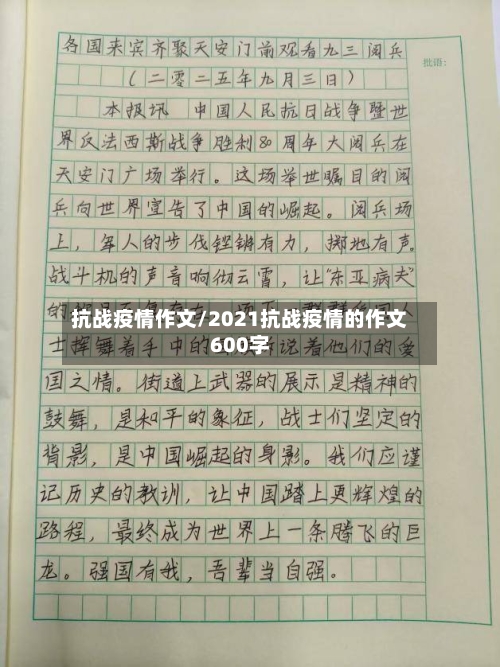 各国来宾齐聚天安门前观看九三阅兵
批语:
(二零二五年九月三日)
本报讯 中国人民抗日战争暨世
界反法西斯战争胜利80周年大阅兵在
天安门广场举行。这场举世瞩目的阅
兵向世界宣告了中国的崛起。阅兵场
上,军人的步伐铿锵有力,掷地有声。
战斗机的声音响彻云霄,让“东亚病夫”
抗战疫情作文/2021抗战疫情的作文
600字
士挥舞着手中的 诉说着他们的爱
国之情。街道上武器的展示是精神的
鼓舞,是和平的象征,战士们坚定的
背影,是中国崛起的身影。我们应谨
记历史的教训,让中国踏上更辉煌的
路程,最终成为世界上一条腾飞的巨
龙。强国有我,吾辈当自强。